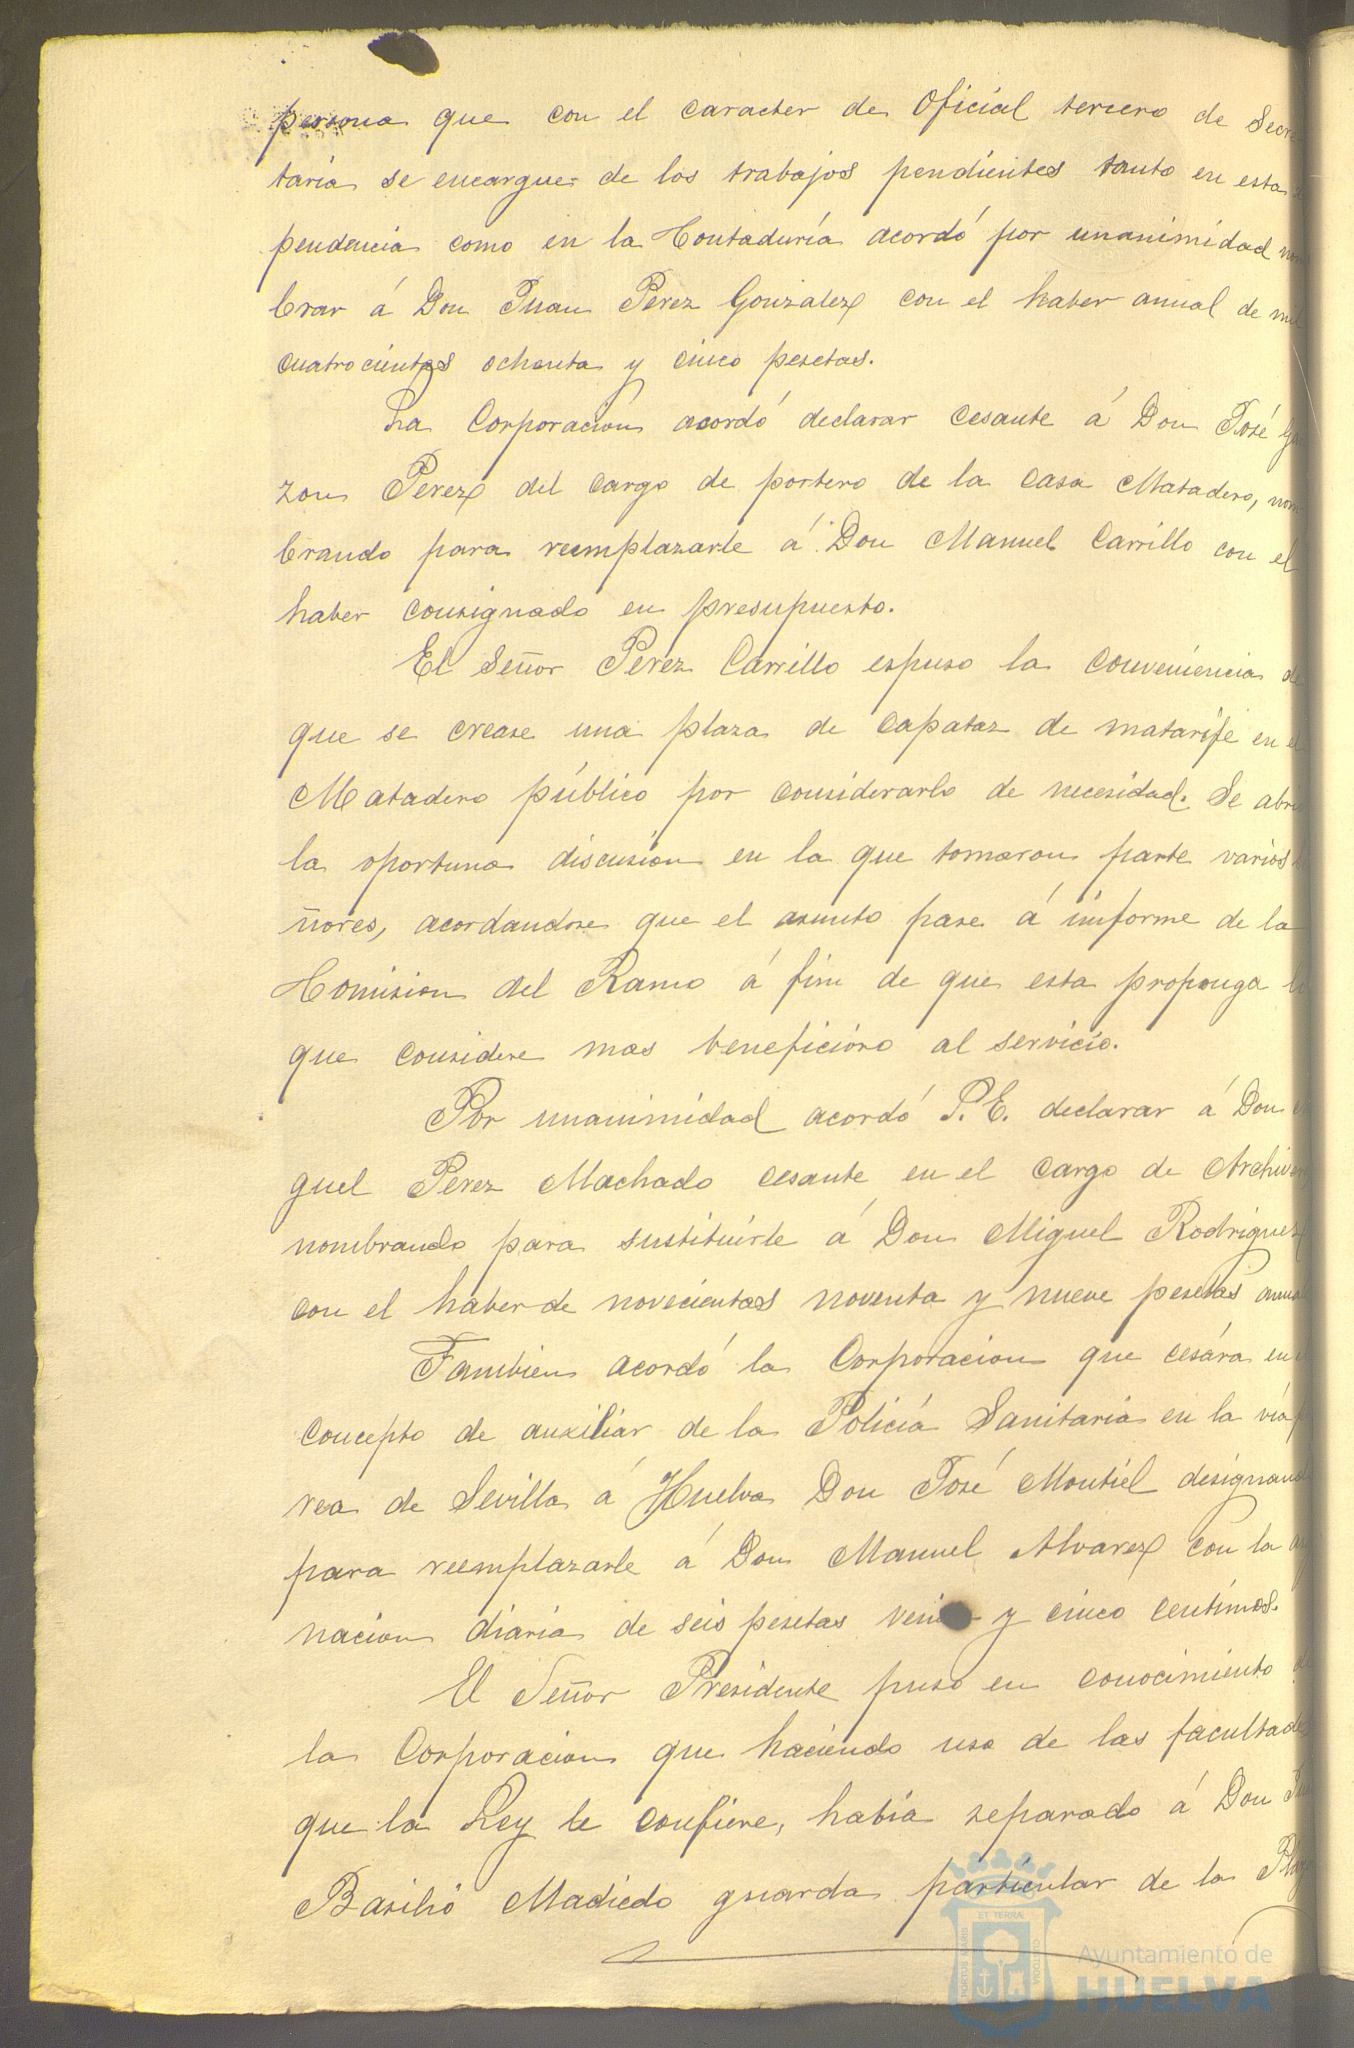 persona que con el caracter de Oficial tercero de Secre
taria se encargue de los trabajos pendientes tanto en esta
pendencia como en la Contaduría acordó por unanimidad nom
brar á Don Juan Perez Gonzalez con el haber anual de mil
cuatrocientas ochenta y cinco pesetas.
La Corporación acordó declarar cesante á Don José
zon Perez del cargo de portero de la casa Matadero, nom
brando para reemplazarle á Don Manuel Carrillo con el
haber consignado en presupuesto.
El Señor Perez Carrillo espuso la conveniencia de
que se crease una plaza de capataz de matarife en el
Matadero público por considerarlo de necesidad. Se abri
la oportuna discusion en la que tomaron parte varios
ñores, acordandose que el asunto pase á informe de la
Comision del Ramo á fin de que esta proponga lo
que considere mas beneficioso al servicio.
Por unanimidad acordó S. E. declarar á Don
guel Perez Machado cesante en el cargo de Archivero
nombrando para sustituirle á Don Miguel Rodriguez
con el haber de novecientas noventa y nueve pesetas anual
Tambien acordó la Corporacion que cesára en
concepto de auxiliar de la Policía Sanitaria en la via
rea de Sevilla á Huelva Don José Montiel designand
para reemplazarle á Don Manuel Alvarez con la
nacion diaria de seis pesetas y cinco centimos.
El Señor Presidente puso en conocimiento
la Corporacion que haciendo uso de las facultades
que la Ley le confiere, había separado á Don
Basilio Madiedo guarda particular de la
PORTUS MARIS
ET TERRÆ
CUSTODIA
Ayuntamiento de
HUELVA